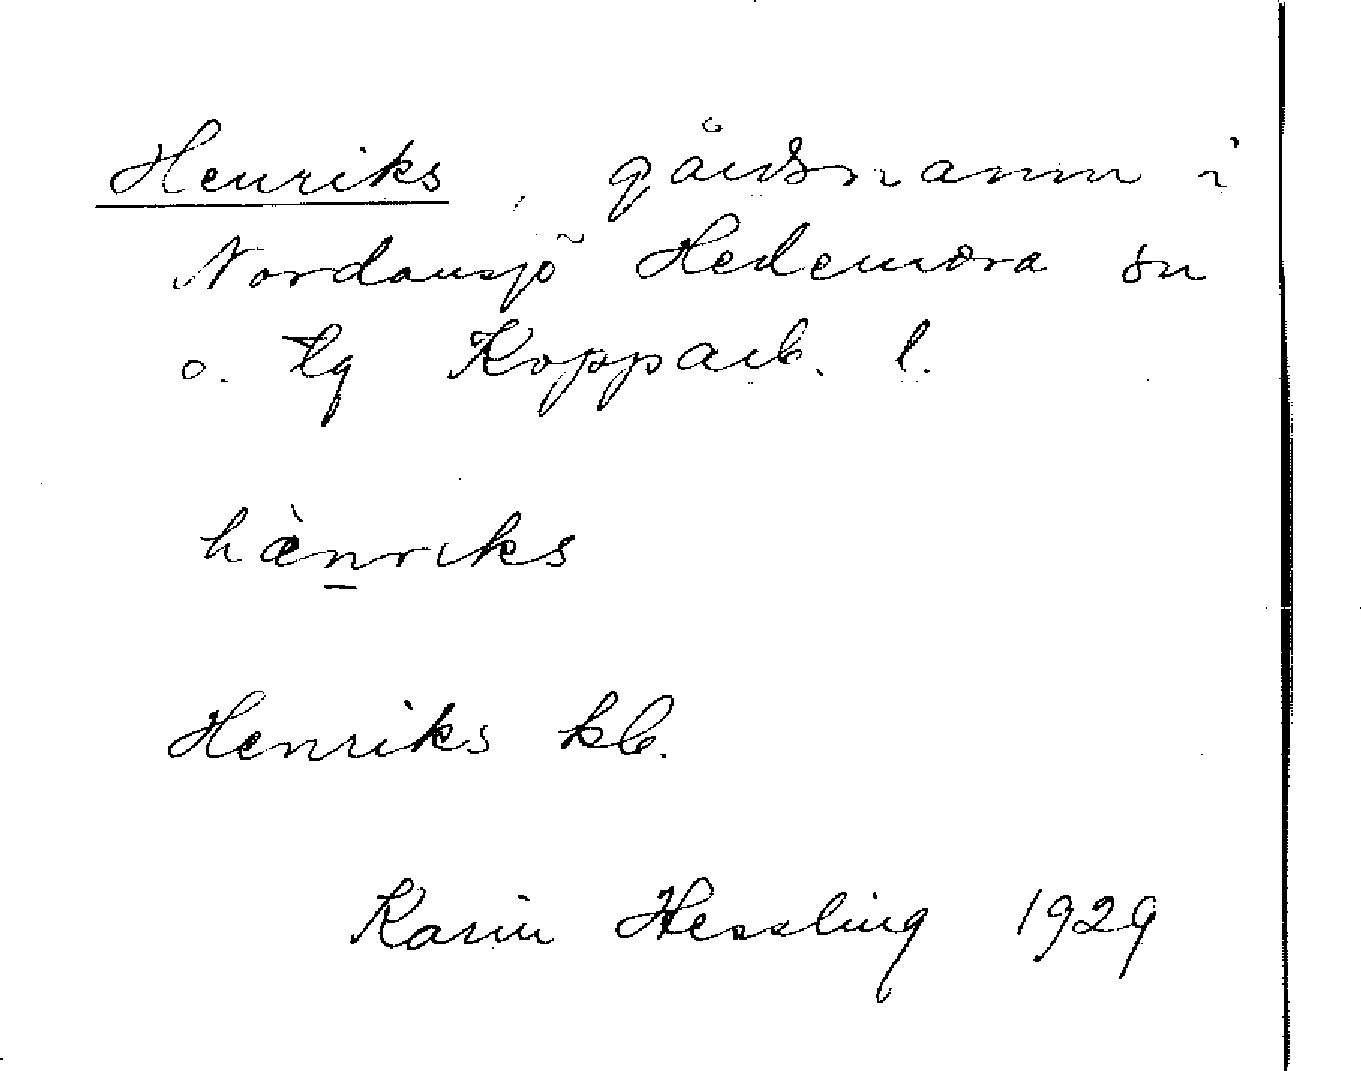 Henriks, gårdsnamn i
Nordansjö Hedemora sn
o. tg Kopparb. l.
hæ̀n̲riks
Henriks kb.
Karin Hessling 1929